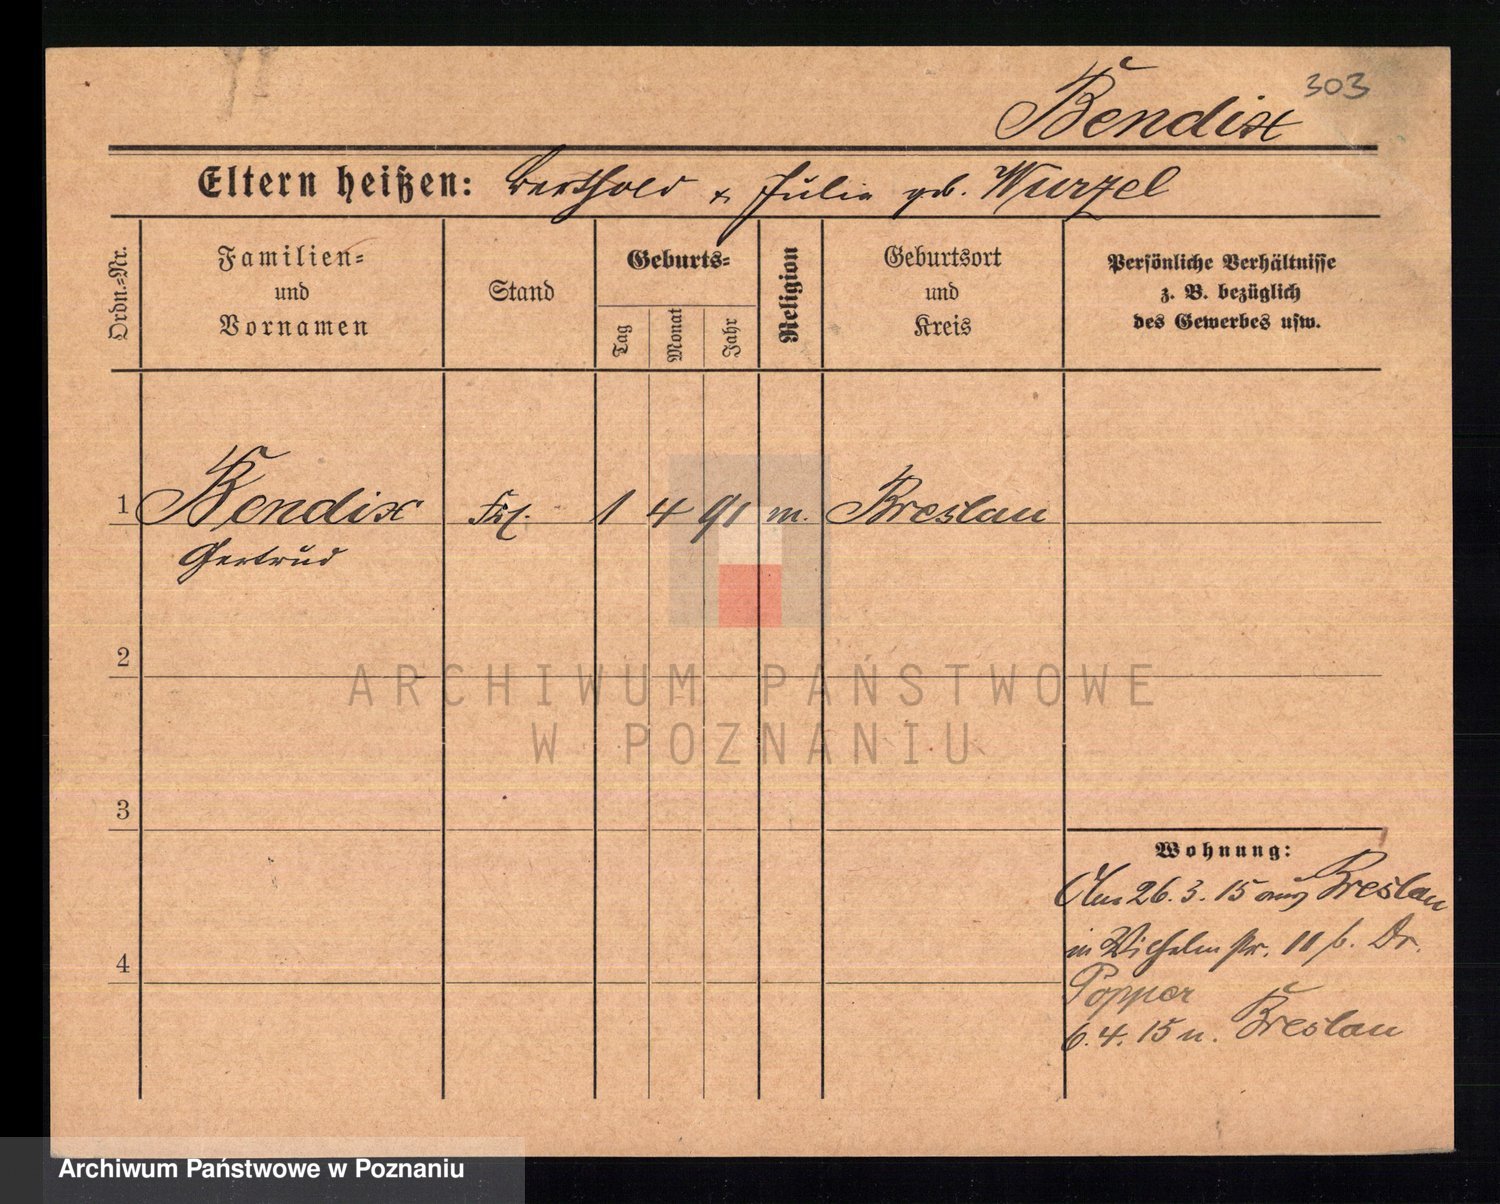 303
Bendix
Eltern heißen: Berthold & Julie geb. Wurzel
Ordn.-Nr.
Familien- und Vornamen
Stand
Geburts-
Tag
Monat
Jahr
Religion
Geburtsort und Kreis
Persönliche Verhältnisse
z. B. bezüglich
des Gewerbes usw.
1 Bendix Frl. 1 4 91 m. Breslau
Gertrud
2
ARCHIWUM PAŃSTWOWE
W POZNANIU
3
Wohnung:
Am 26.3.15 aus Breslau
in Wilhelmstr. 11 b. Dr.
4
Popper
6.4.15 n. Breslau
Archiwum Państwowe w Poznaniu